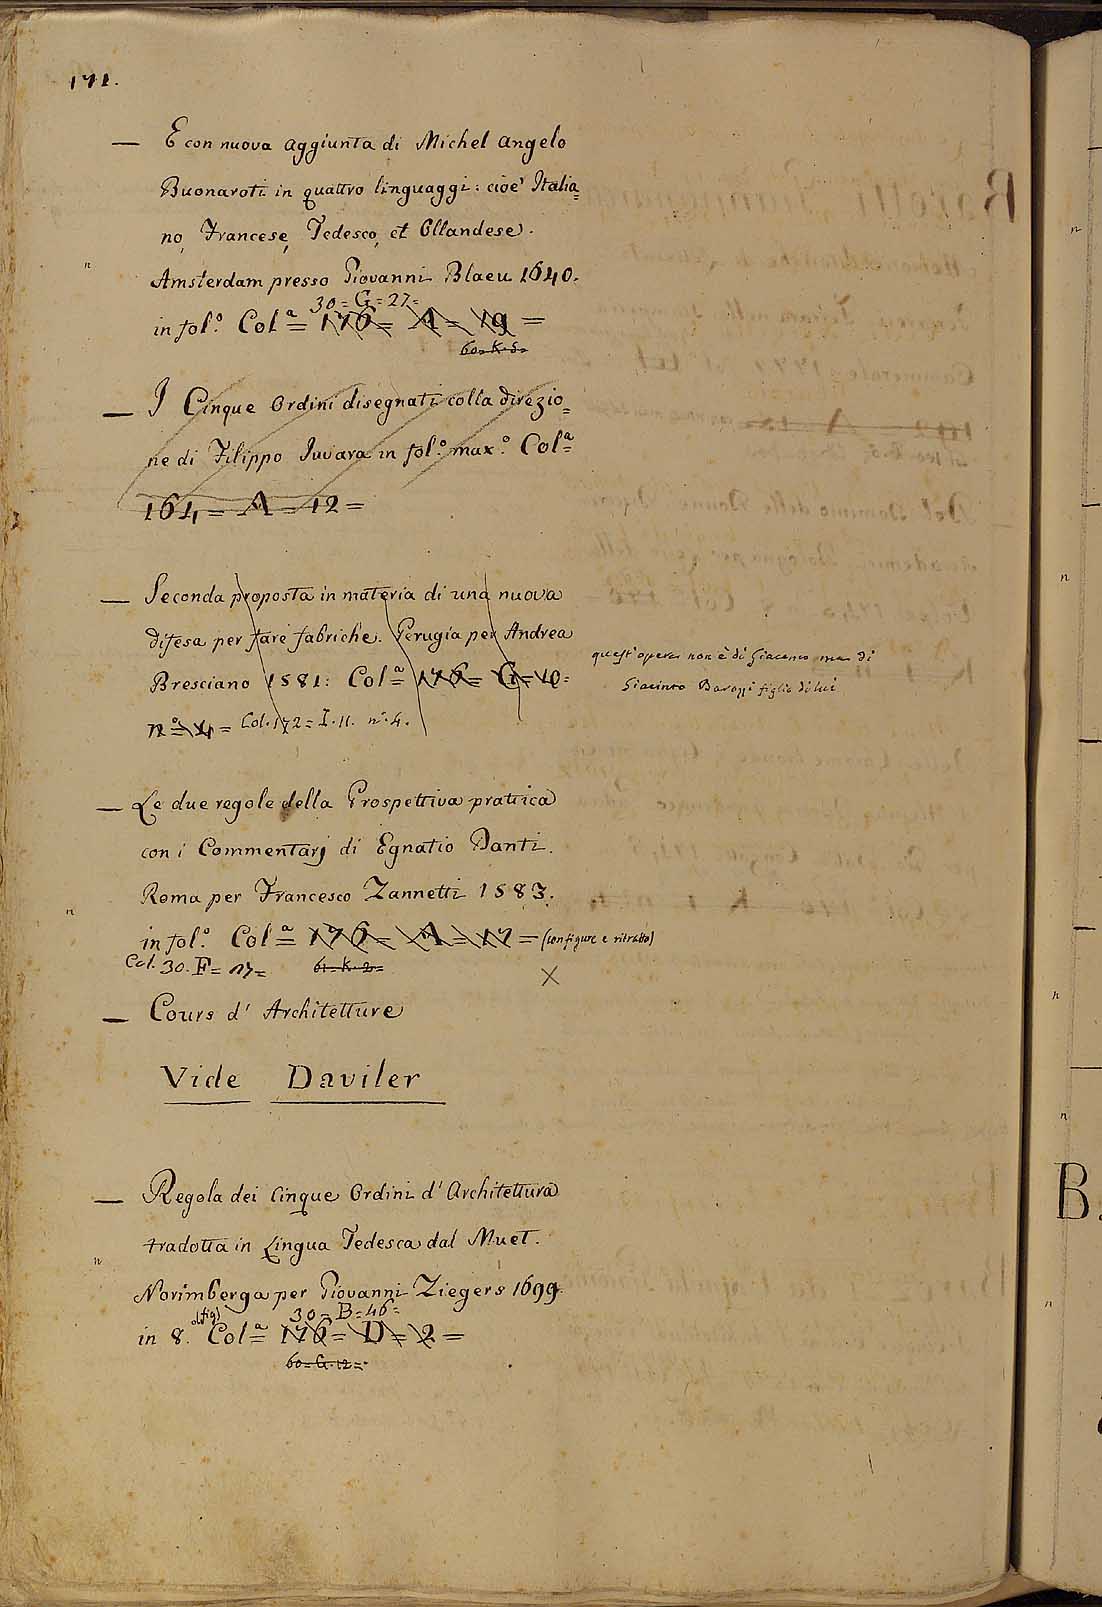 171.
— E con nuova aggiunta di Michel Angelo
Buonaroti in quattro linguaggi: cioè Italia=
no, Francese, Tedesco, et Ollandese.
n
Amsterdam presso Giovanni Blaeu 1640.
30 = G = 27 =
in fol.º Col.ª = 176 = A = 19 =
60 = K. 5 =
— I Cinque Ordini disegnati colla direzio=
ne di Filippo Juvara in fol.º max.º Col.ª =
164 = A = 12 =
— Seconda proposta in materia di una nuova
difesa per fare fabriche. Perugia per Andrea
Bresciano 1581: Col.ª = 176 = G = 10 =
n.º = 4 = Col. 172 = I. 11. n.º 4.
quest'opera non è di Giacomo ma di
Giacinto Barozzi figlio di lui
— Le due regole della Prospettiva prattica
con i Commentarj di Egnatio Danti.
Roma per Francesco Zannetti 1583.
n
in fol.º Col.ª = 176 = A = 17 = (con figure e ritratto)
Col. 30. F = 17 = 61 = K. 2 =
X
— Cours d' Architetture
Vide Daviler
— Regola dei Cinque Ordini d' Architettura
tradotta in Lingua Tedesca dal Muet.
n
Norimberga per Giovanni Ziegers 1699.
(fig) 30 = B = 46 =
in 8. Col.ª = 176 = D = 2 =
60 = G. 12 =
n
n
n
n
n
B.